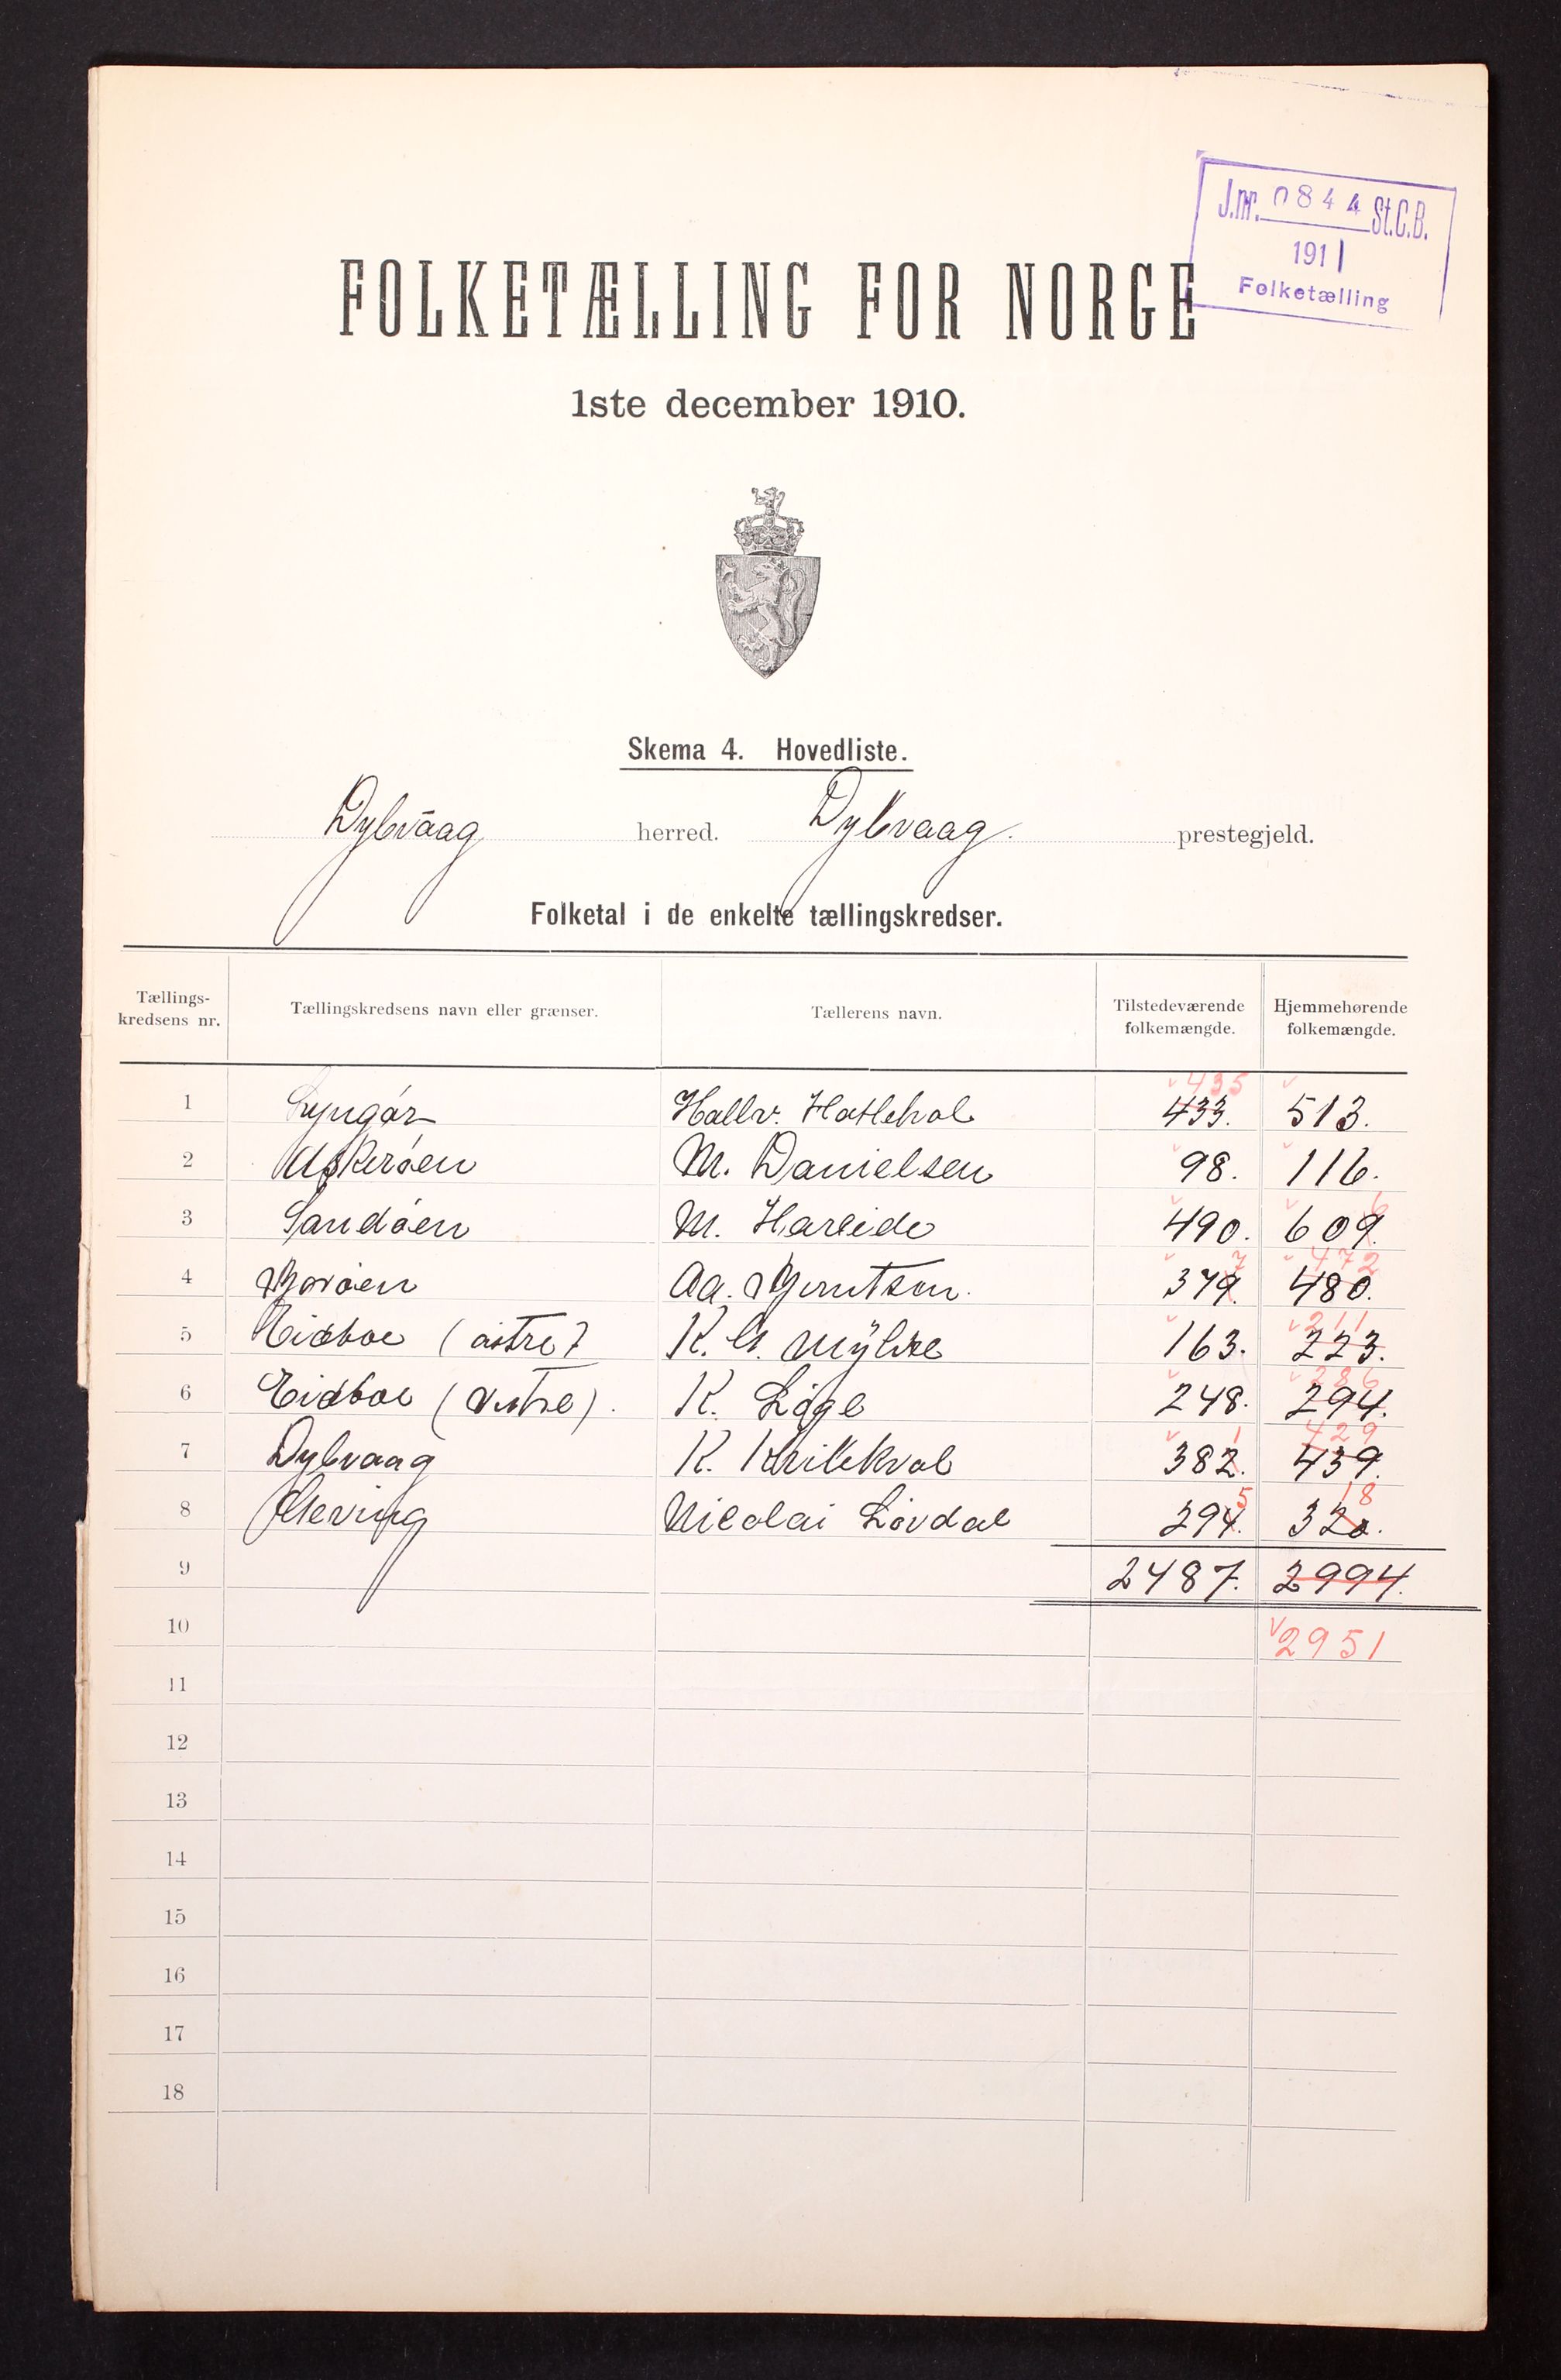 J.nr. 0844 St.C.B.
1911
Folketælling
FOLKETÆLLING FOR NORGE
1ste december 1910.
Skema 4. Hovedliste.
Dybvaag herred. Dybvaag. prestegjeld.
Folketal i de enkelte tællingskredser.
Tællings-
kredsens nr. Tællingskredsens navn eller grænser. Tællerens navn. Tilstedeværende
folkemængde. Hjemmehørende
folkemængde.
435
1 Lyngør Hallv. 433. 513.
2 Askerøen M. Danielsen 98. 116.
6
3 Sandøen M. Hareide 490. 609.
7 472
4 Borøen Aa. Berntsen. 379. 480.
211
5 Eidboe (østre) K. 163. 223.
286
6 Eidboe (Vestre). K. Løge 248. 294.
1 429
7 Dybvaag K. 382. 439.
5 18
8 Gjeving Nicolai Løvdal 294. 320.
9 2487. 2994.
10 2951
11
12
13
14
15
16
17
18